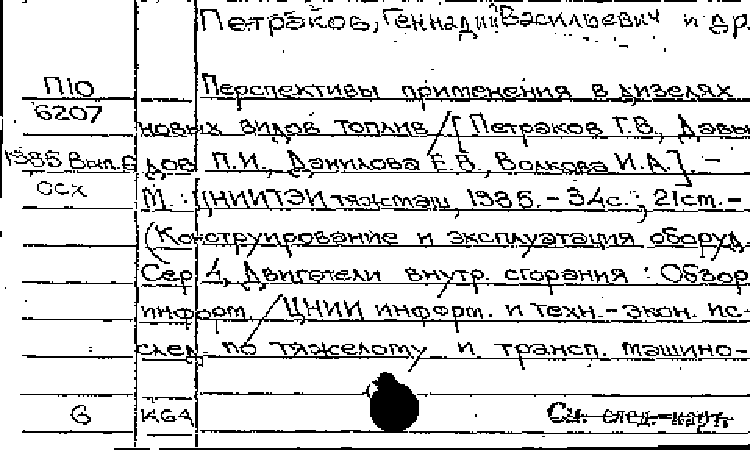 Петраков, Геннадий Васильевич и др.
П10 Перспективы применения в дизелях
6207 новых видов топлив / [Петраков Г.В., Давы-
1985 Вып.6 дов П.И., Данилова Е.В., Волкова И.А.]. -
осх М.: ЦНИИТЭИтяжмаш, 1985. - 34с.; 21см. -
(Конструирование и эксплуатация оборуд.
Сер 4, Двигатели внутр. сгорания : Обзор.
информ. / ЦНИИ информ. и техн.-экон. ис-
след. по тяжелому и трансп. машино-
6 К64 См. след. карт.